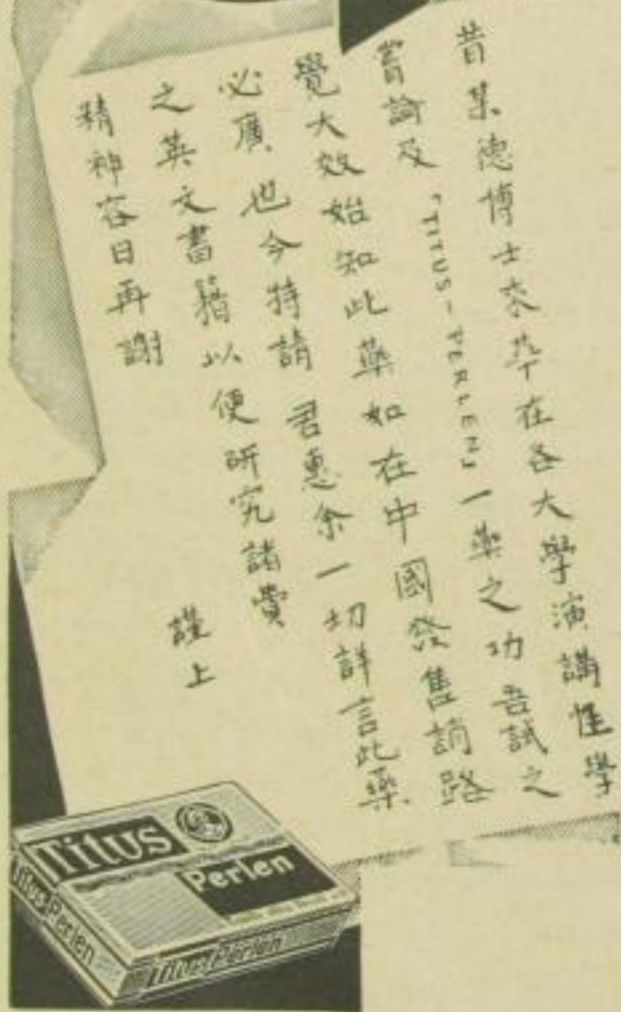 昔某德博士來華在各大學演講性學
嘗論及「TITUS-PERLEN」一藥之功吾試之
覺大效始知此藥如在中國發售銷路
必廣也今特請君惠余一切詳言此藥
之英文書籍以便研究諸費
精神容日再謝
謹上
Titus
Perlen
Titus Perlen
Titus Perlen